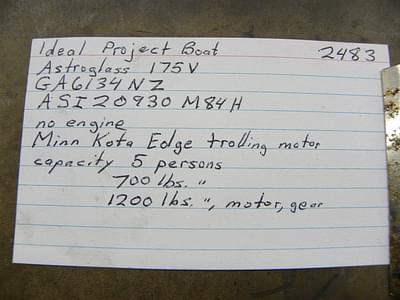 Ideal Project Boat 2483
Astroglass 175V
GA6134NZ
ASI20930M84H
no engine
Minn Kota Edge trolling motor
capacity 5 persons
700 lbs. "
1200 lbs. ", motor, gear